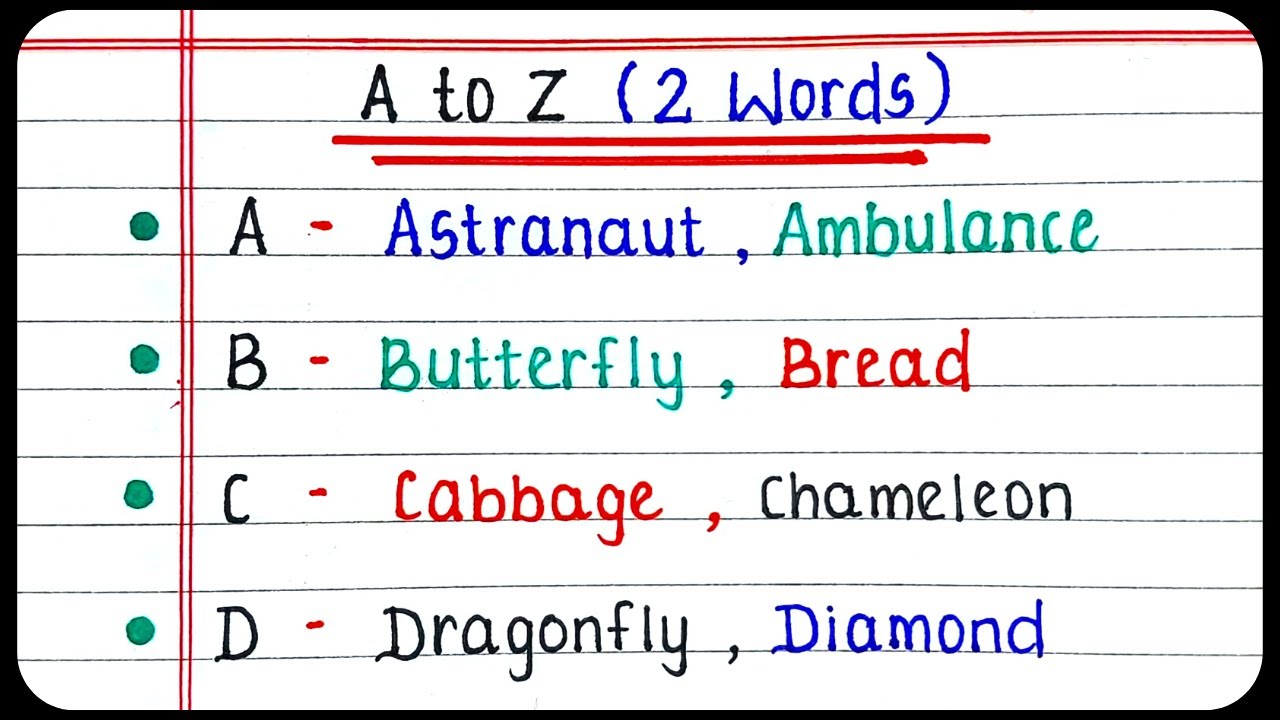 A to Z (2 Words)
A - Astranaut , Ambulance
B - Butterfly , Bread
C - Cabbage , Chameleon
D - Dragonfly , Diamond